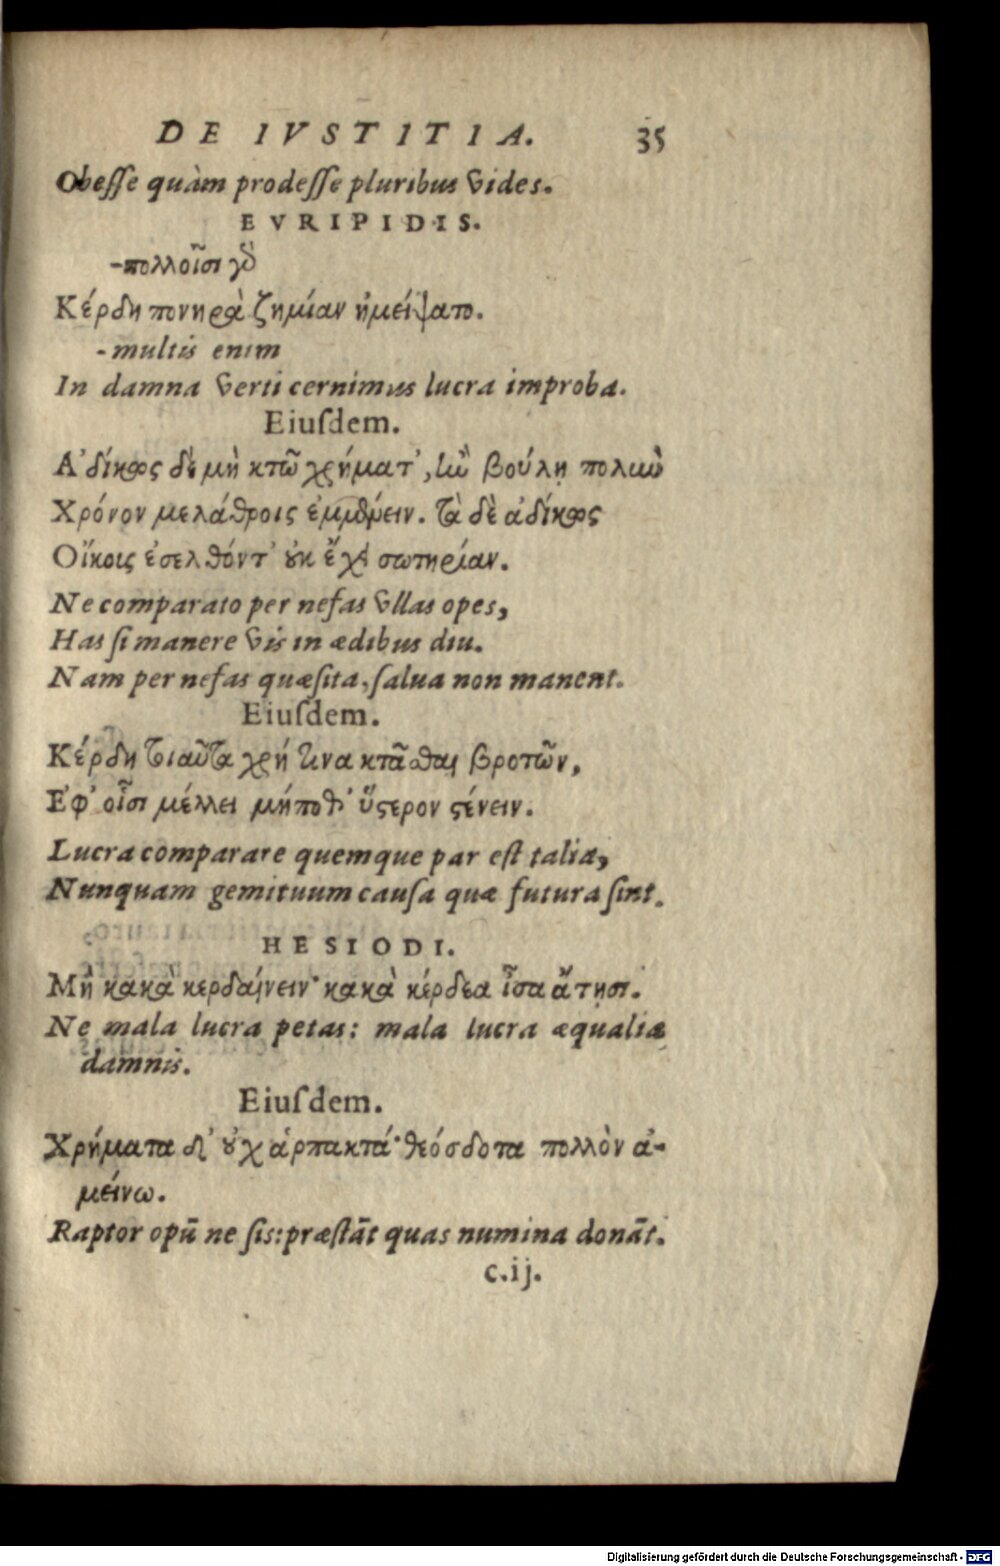 DE IVSTITIA. 35
Obesse quàm prodesse pluribus vides.
EVRIPIDIS.
-πολλοῖσι γὸ
Κέρδη πονηρὰ ζημίαν ἠμείψατο.
-multis enim
In damna verti cernimus lucra improba.
Eiusdem.
Α’δίκως δὲ μὴ κτῶ χρήματ’, ἰὼ βούλῃ πολιὼ
Χρόνον μελάθροις ἐμμθύειν. τὰ δὲ ἀδίκως
Οἴκοις ἐσελθόντ’ ȣκ ἔχει σωτηρίαν.
Ne comparato per nefas vllas opes,
Has si manere vis in ædibus diu.
Nam per nefas quæsita, salua non manent.
Eiusdem.
Κέρδη τοιαῦτα χρή τινα κτᾶσθαι βροτῶν,
Ε’φ’ οἷσι μέλλει μήποθ’ ὕστερον στένειν.
Lucra comparare quemque par est talia,
Nunquam gemituum causa quæ futura sint.
HESIODI.
Μὴ κακὰ κερδαίνειν· κακὰ κέρδεα ἶσα ἄτῃσι.
Ne mala lucra petas: mala lucra æqualia
damnis.
Eiusdem.
Χρήματα δ’ ȣχ ἁρπακτά· θεόσδοτα πολλὸν ἀ-
μείνω.
Raptor opū ne sis: præstāt quas numina donāt.
c.ij.
Digitalisierung gefördert durch die Deutsche Forschungsgemeinschaft - DFG